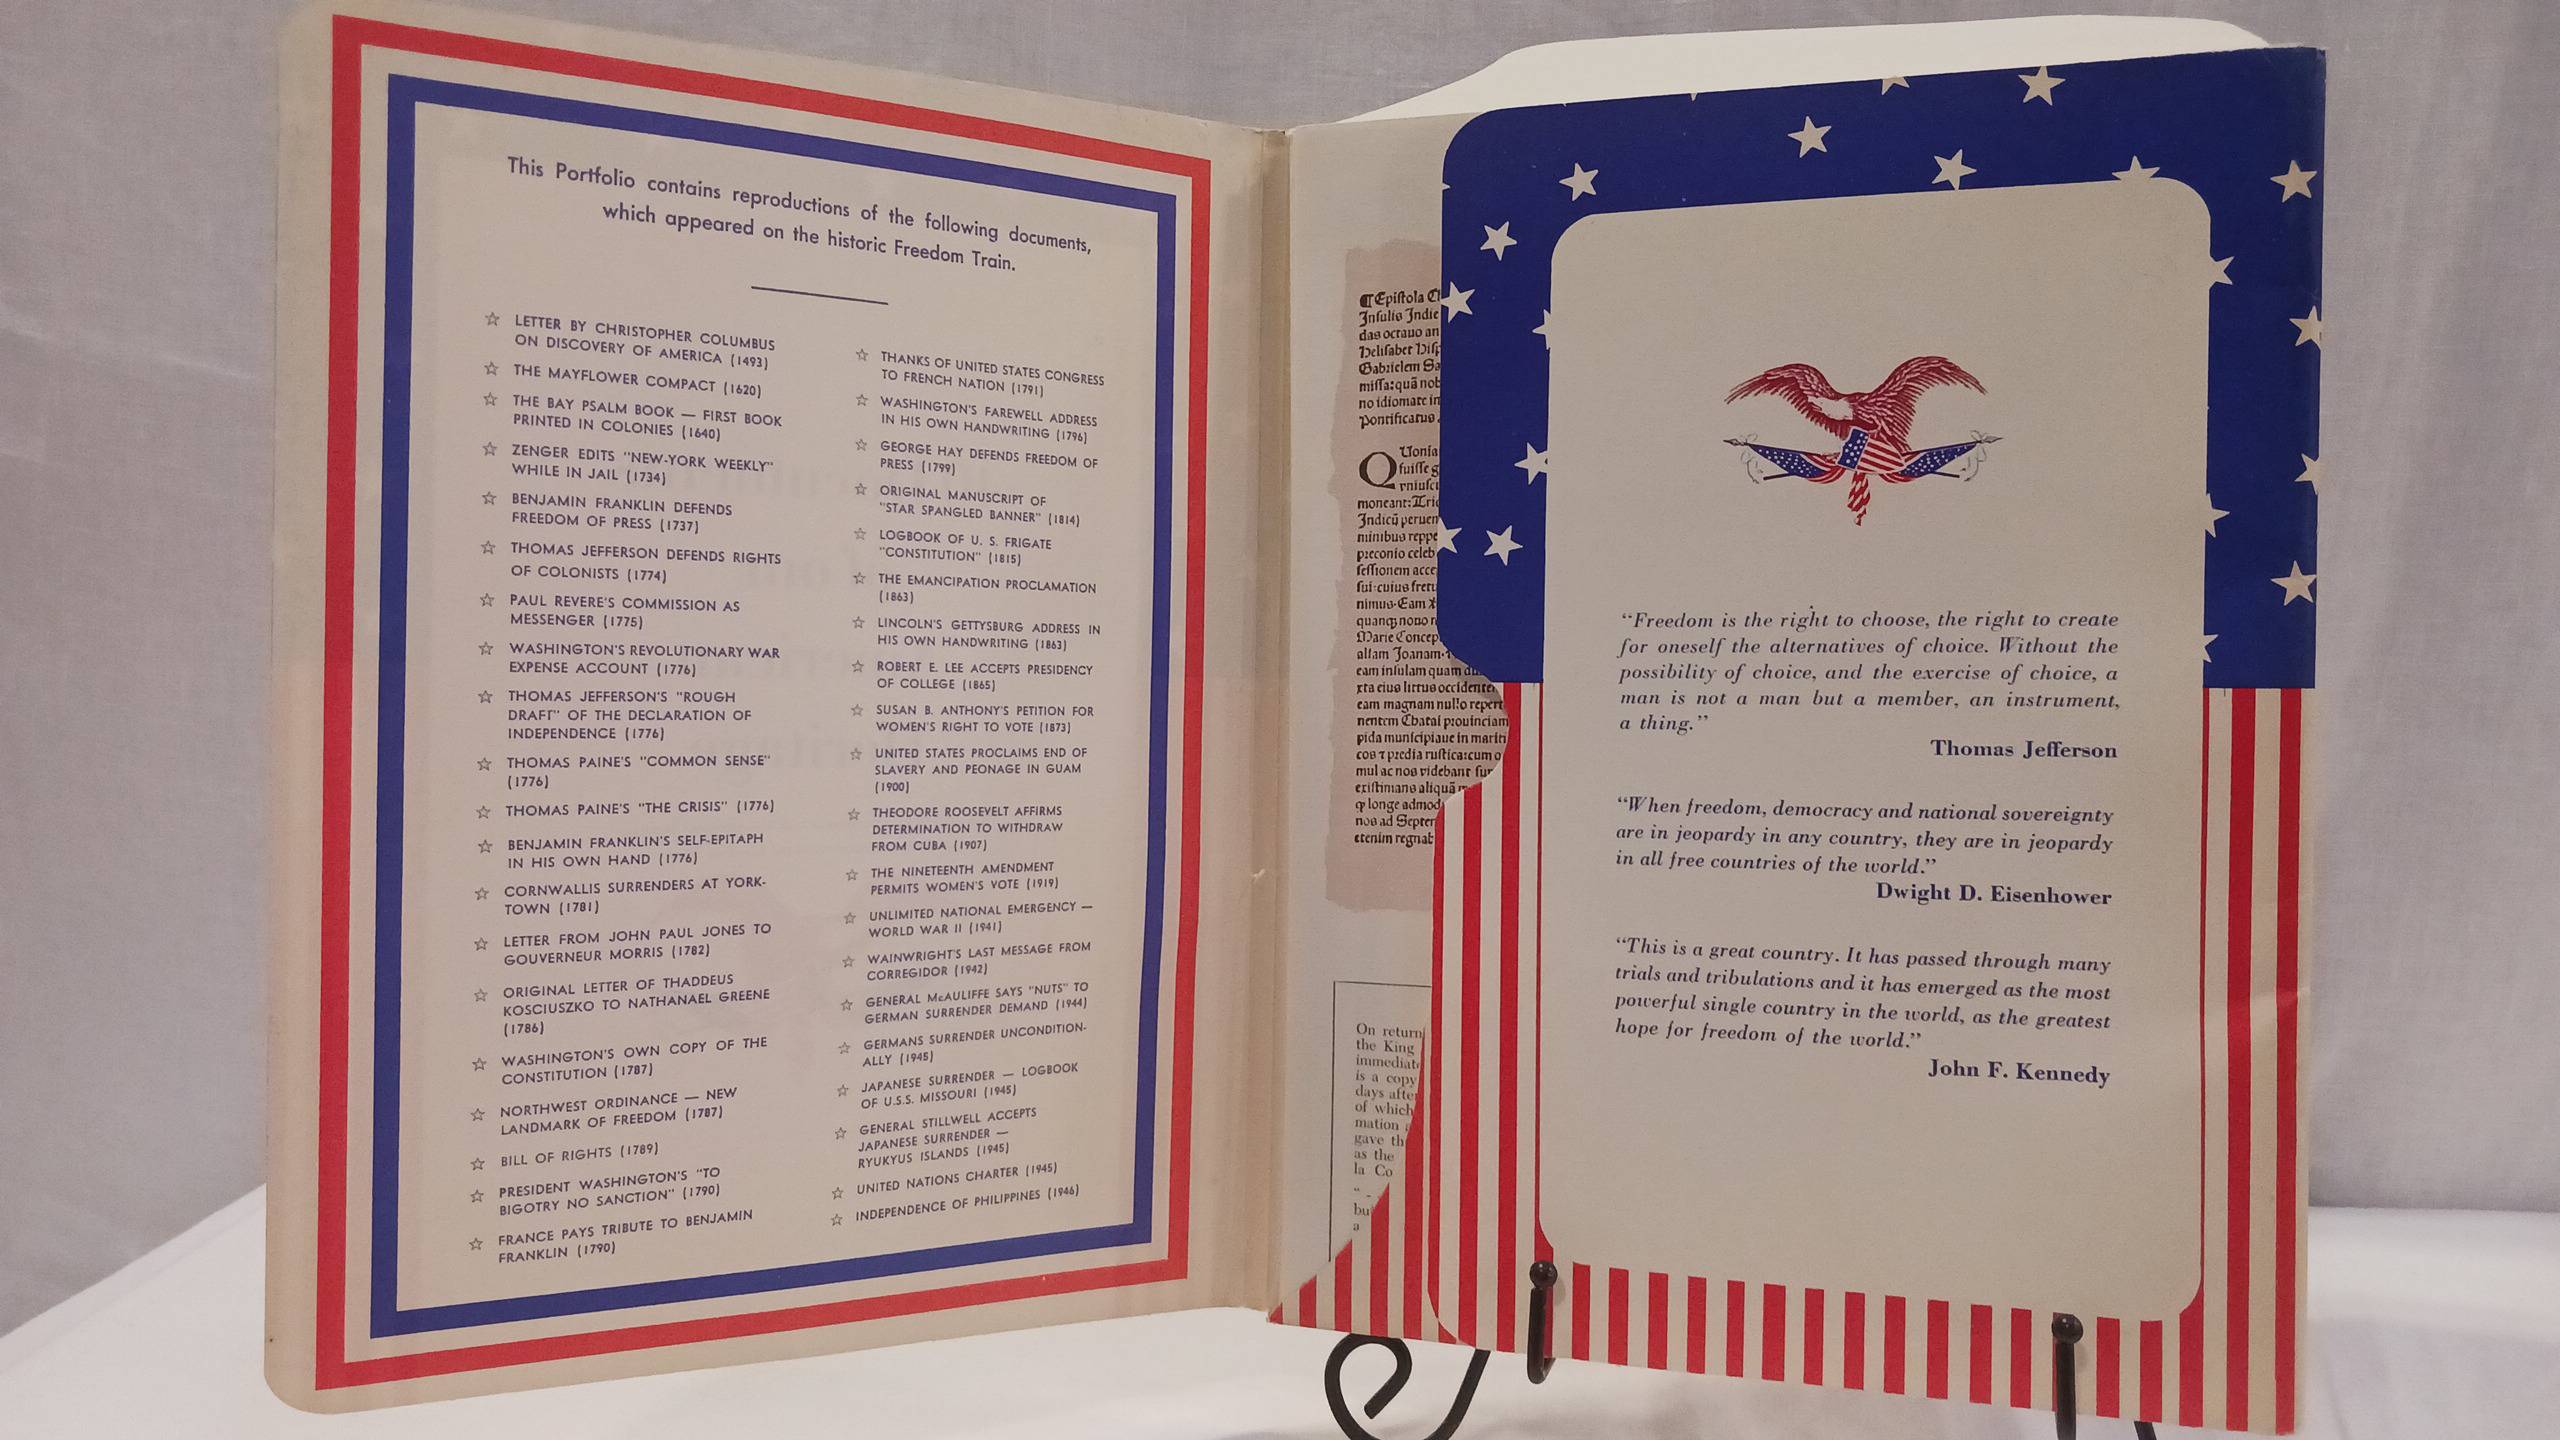 This Portfolio contains reproductions of the following documents,
which appeared on the historic Freedom Train.
LETTER BY CHRISTOPHER COLUMBUS
ON DISCOVERY OF AMERICA (1493)
THE MAYFLOWER COMPACT (1620)
THE BAY PSALM BOOK — FIRST BOOK
PRINTED IN COLONIES (1640)
ZENGER EDITS "NEW-YORK WEEKLY"
WHILE IN JAIL (1734)
BENJAMIN FRANKLIN DEFENDS
FREEDOM OF PRESS (1737)
THOMAS JEFFERSON DEFENDS RIGHTS
OF COLONISTS (1774)
PAUL REVERE'S COMMISSION AS
MESSENGER (1775)
WASHINGTON'S REVOLUTIONARY WAR
EXPENSE ACCOUNT (1776)
THOMAS JEFFERSON'S "ROUGH
DRAFT" OF THE DECLARATION OF
INDEPENDENCE (1776)
THOMAS PAINE'S "COMMON SENSE"
(1776)
THOMAS PAINE'S "THE CRISIS" (1776)
BENJAMIN FRANKLIN'S SELF-EPITAPH
IN HIS OWN HAND (1776)
CORNWALLIS SURRENDERS AT YORK-
TOWN (1781)
LETTER FROM JOHN PAUL JONES TO
GOUVERNEUR MORRIS (1782)
ORIGINAL LETTER OF THADDEUS
KOSCIUSZKO TO NATHANAEL GREENE
(1786)
WASHINGTON'S OWN COPY OF THE
CONSTITUTION (1787)
NORTHWEST ORDINANCE — NEW
LANDMARK OF FREEDOM (1787)
BILL OF RIGHTS (1789)
PRESIDENT WASHINGTON'S "TO
BIGOTRY NO SANCTION" (1790)
FRANCE PAYS TRIBUTE TO BENJAMIN
FRANKLIN (1790)
THANKS OF UNITED STATES CONGRESS
TO FRENCH NATION (1791)
WASHINGTON'S FAREWELL ADDRESS
IN HIS OWN HANDWRITING (1796)
GEORGE HAY DEFENDS FREEDOM OF
PRESS (1799)
ORIGINAL MANUSCRIPT OF
"STAR SPANGLED BANNER" (1814)
LOGBOOK OF U. S. FRIGATE
"CONSTITUTION" (1815)
THE EMANCIPATION PROCLAMATION
(1863)
LINCOLN'S GETTYSBURG ADDRESS IN
HIS OWN HANDWRITING (1863)
ROBERT E. LEE ACCEPTS PRESIDENCY
OF COLLEGE (1865)
SUSAN B. ANTHONY'S PETITION FOR
WOMEN'S RIGHT TO VOTE (1873)
UNITED STATES PROCLAIMS END OF
SLAVERY AND PEONAGE IN GUAM
(1900)
THEODORE ROOSEVELT AFFIRMS
DETERMINATION TO WITHDRAW
FROM CUBA (1907)
THE NINETEENTH AMENDMENT
PERMITS WOMEN'S VOTE (1919)
UNLIMITED NATIONAL EMERGENCY —
WORLD WAR II (1941)
WAINWRIGHT'S LAST MESSAGE FROM
CORREGIDOR (1942)
GENERAL McAULIFFE SAYS "NUTS" TO
GERMAN SURRENDER DEMAND (1944)
GERMANS SURRENDER UNCONDITION-
ALLY (1945)
JAPANESE SURRENDER — LOGBOOK
OF U.S.S. MISSOURI (1945)
GENERAL STILLWELL ACCEPTS
JAPANESE SURRENDER —
RYUKYUS ISLANDS (1945)
UNITED NATIONS CHARTER (1945)
INDEPENDENCE OF PHILIPPINES (1946)
Epistola
Insulis Indie
das octavo an
Gabrielem
no idiomate in
Pontificatus
moneant:
preconio
nimus. Eam
Marie
aliam Joanam.
eam insulam quam
eam magnam nullo
nos ad
On return
the King
is a copy
days after
of which
mation
gave th
as the
la Co
bu
a
"Freedom is the right to choose, the right to create
for oneself the alternatives of choice. Without the
possibility of choice, and the exercise of choice, a
man is not a man but a member, an instrument,
a thing."
Thomas Jefferson
"When freedom, democracy and national sovereignty
are in jeopardy in any country, they are in jeopardy
in all free countries of the world."
Dwight D. Eisenhower
"This is a great country. It has passed through many
trials and tribulations and it has emerged as the most
powerful single country in the world, as the greatest
hope for freedom of the world."
John F. Kennedy